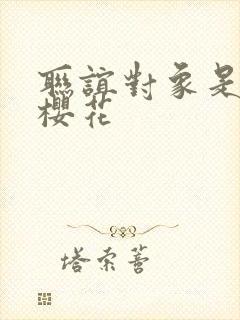 聯誼對象是
櫻花
塔索蓍